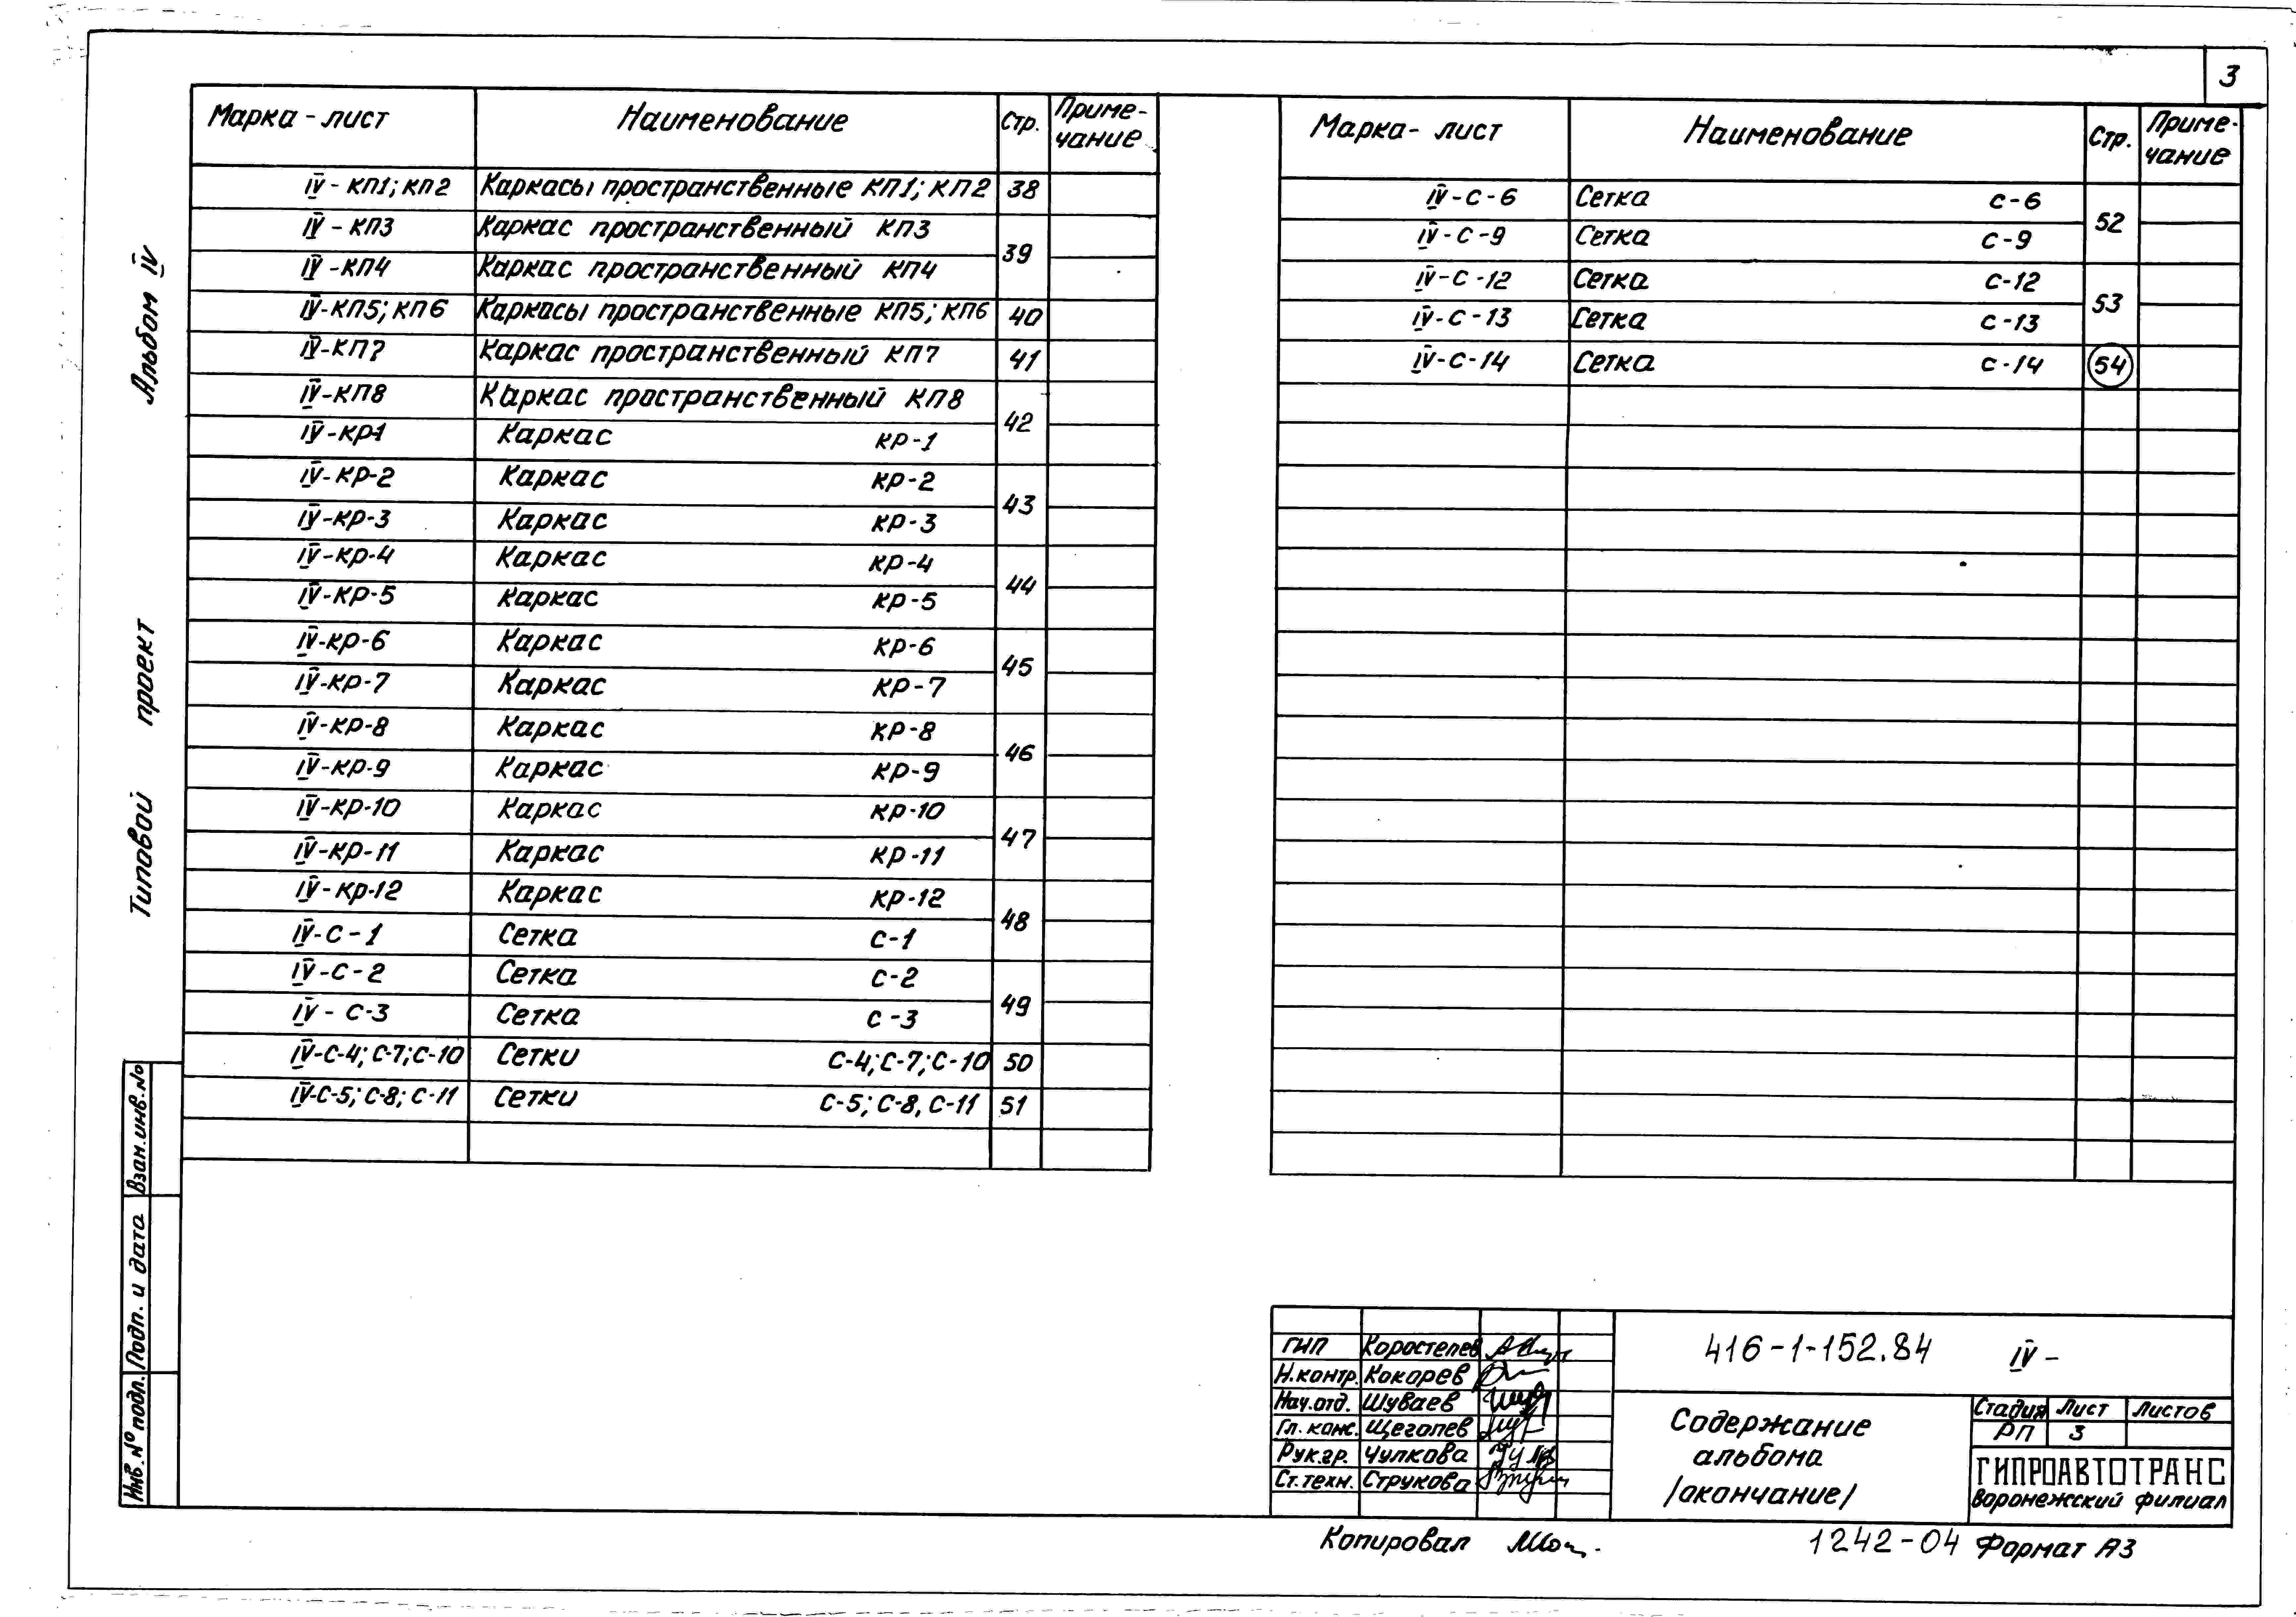 3
Марка - лист Наименование Стр. Приме-чание
IV - КП1; КП2 Каркасы пространственные КП1; КП2 38
IV - КП3 Каркас пространственный КП3 39
IV - КП4 Каркас пространственный КП4
IV-КП5; КП6 Каркасы пространственные КП5; КП6 40
IV-КП7 Каркас пространственный КП7 41
IV-КП8 Каркас пространственный КП8 42
IV-КР1 Каркас КР-1
IV-КР-2 Каркас КР-2 43
IV-КР-3 Каркас КР-3
IV-КР-4 Каркас КР-4 44
IV-КР-5 Каркас КР-5
IV-КР-6 Каркас КР-6 45
IV-КР-7 Каркас КР-7
IV-КР-8 Каркас КР-8 46
IV-КР-9 Каркас КР-9
IV-КР-10 Каркас КР-10 47
IV-КР-11 Каркас КР-11
IV-КР-12 Каркас КР-12 48
IV-С-1 Сетка С-1
IV-С-2 Сетка С-2 49
IV-С-3 Сетка С-3
IV-С-4; С-7; С-10 Сетки С-4; С-7; С-10 50
IV-С-5; С-8; С-11 Сетки С-5; С-8, С-11 51
Марка - лист Наименование Стр. Приме-чание
IV-С-6 Сетка С-6 52
IV-С-9 Сетка С-9
IV-С-12 Сетка С-12 53
IV-С-13 Сетка С-13
IV-С-14 Сетка С-14 54
Альбом IV
Типовой проект
Взам.инв.№
Подп. и дата
Инв.№ подл.
ГИП Коростелев
Н.контр. Кокорев
Нач.отд. Шуваев
Гл. конс. Щеголев
Рук.гр. Чулкова
Ст.техн. Струкова
416-1-152.84 IV-
Содержание
альбома
/окончание/
Стадия Лист Листов
РП 3
ГИПРОАВТОТРАНС
Воронежский филиал
Копировал
1242-04 Формат А3